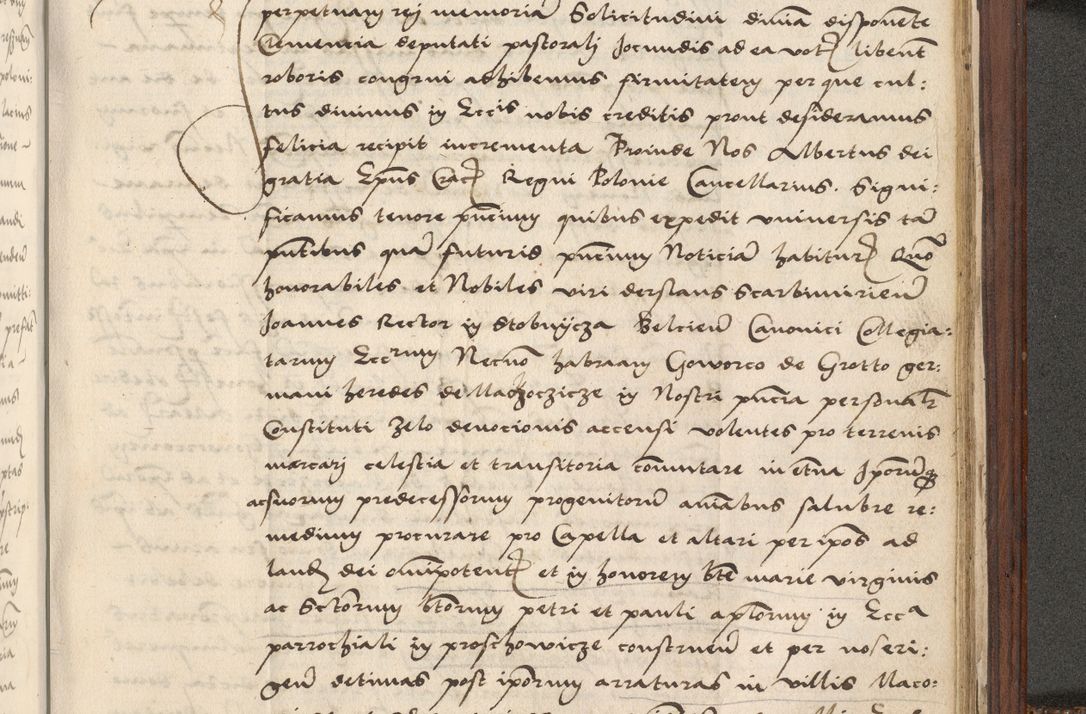 perpetuam rej memoriã Solicitudini diuiã disponente
Clemencia deputati pastoralj Jocundis ad ea vot libent
roboris congrui adhibemus firmitatem per que cul:
tus diuinus in Eccis nobis creditis prout desideramus
felicia recipit incrementa Proinde Nos Albertus dei
gratia Epus Crac Regni Polonie Cancellarius. Signi:
ficamus tenore pncium quibus expedit vniuersis tã
pntibus quã futuris pncium Noticiã habitur Quõ
honorabiles et Nobiles viri derslaus Scarbimirien
Joannes Rector in Stobnijcza Belcien Canonici Collegia:
tarum Eccrum Necnõ habraam Goworco de Grotto ger:
mani heredes de Machoczicze in Nostri pncia personalr
Constituti Zelo deuocionis accensi volentes pro terrenis
mercari celestia et transitoria comutare in etna Iporuq
ac suorum predecessorum progenitorũ aniabus salubre re:
medium procurare pro Capella et altari per ipos ad
laud dei omipotent et in honorem bte marie virginis
ac Sctorum btorum petri et pauli aplorum in Ecca
parrochiali in proschowicze construen et per nos eri:
gen detimas post iporum arraturas in villis Maco: